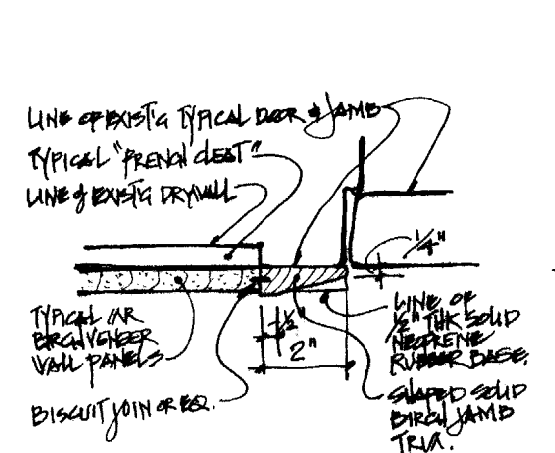 LINE OF EXIST'G TYPICAL DOOR & JAMB
TYPICAL "FRENCH CLEAT"
LINE OF EXIST'G DRYWALL
1/4"
TYPICAL
BIRCH VENEER
WALL PANELS
1/2"
2"
LINE OF
1/2" THK SOLID
NEOPRENE
RUBBER BASE.
BISCUIT JOIN OR EQ.
SHAPED SOLID
BIRCH JAMB
TRIM.